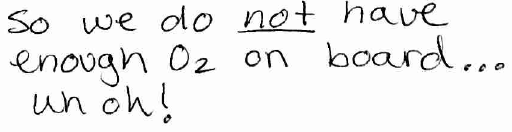 So we do not have
enough O2 on board...
uh oh!